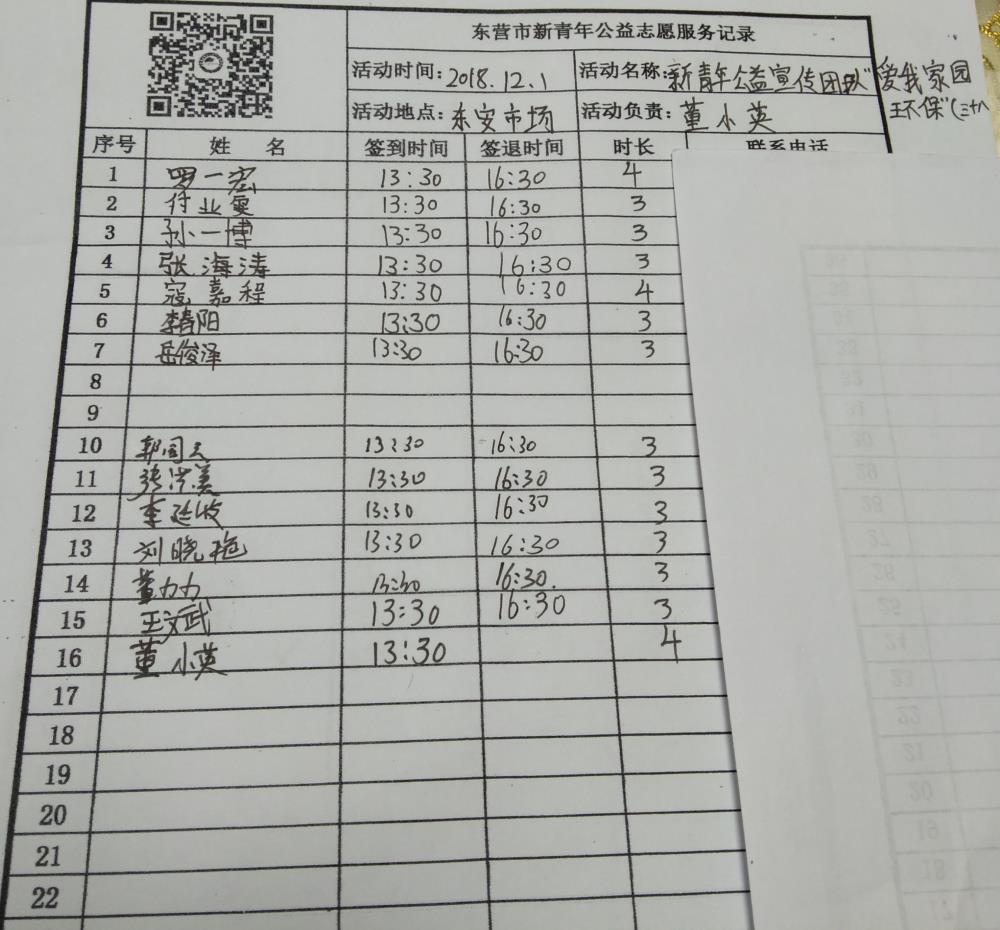 东营市新青年公益志愿服务记录
活动时间: 2018.12.1 活动名称: "新青年公益宣传团队"爱我家园
活动地点: 东安市场 活动负责: 董小英 环保"(三十八
序号 姓 名 签到时间 签退时间 时长 联系电话
1 罗一宏 13:30 16:30 4
2 付业 13:30 16:30 3
3 孙一博 13:30 16:30 3
4 张海涛 13:30 16:30 3
5 寇嘉程 13:30 16:30 4
6 李春阳 13:30 16:30 3
7 岳俊泽 13:30 16:30 3
8
9
10 郭 13:30 16:30 3
11 张洪美 13:30 16:30 3
12 李延波 13:30 16:30 3
13 刘晓艳 13:30 16:30 3
14 董力力 13:30 16:30. 3
15 王文武 13:30 16:30 3
16 董小英 13:30 4
17
18
19
20
21
22